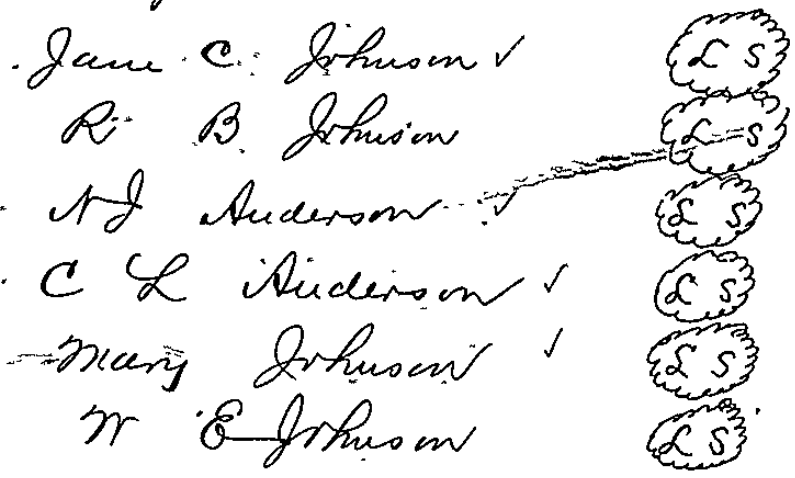 Jane C. Johnson ✓ L S
R. B. Johnson L S
N J Anderson ✓ L S
C L Anderson ✓ L S
Mary Johnson ✓ L S
W E Johnson L S